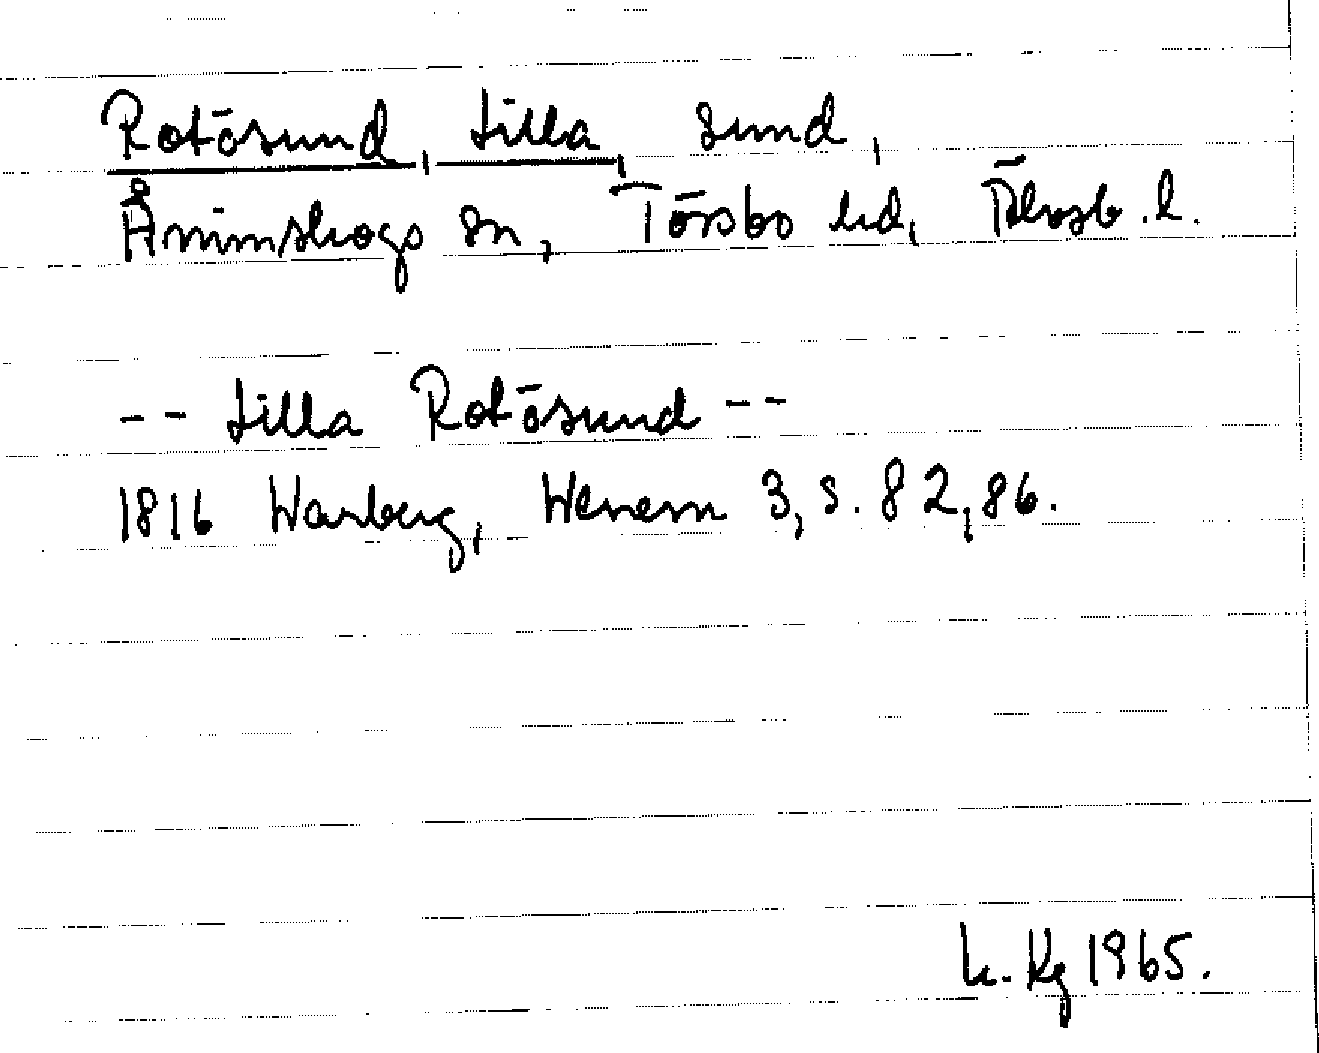 Rotösund, Lilla, sund,
Ånimskogs sn, Tössbo hd, Älvsb. l.
-- Lilla Rotösund --
1816 Warberg, Wenern 3, s. 82, 86.
Kg 1965.